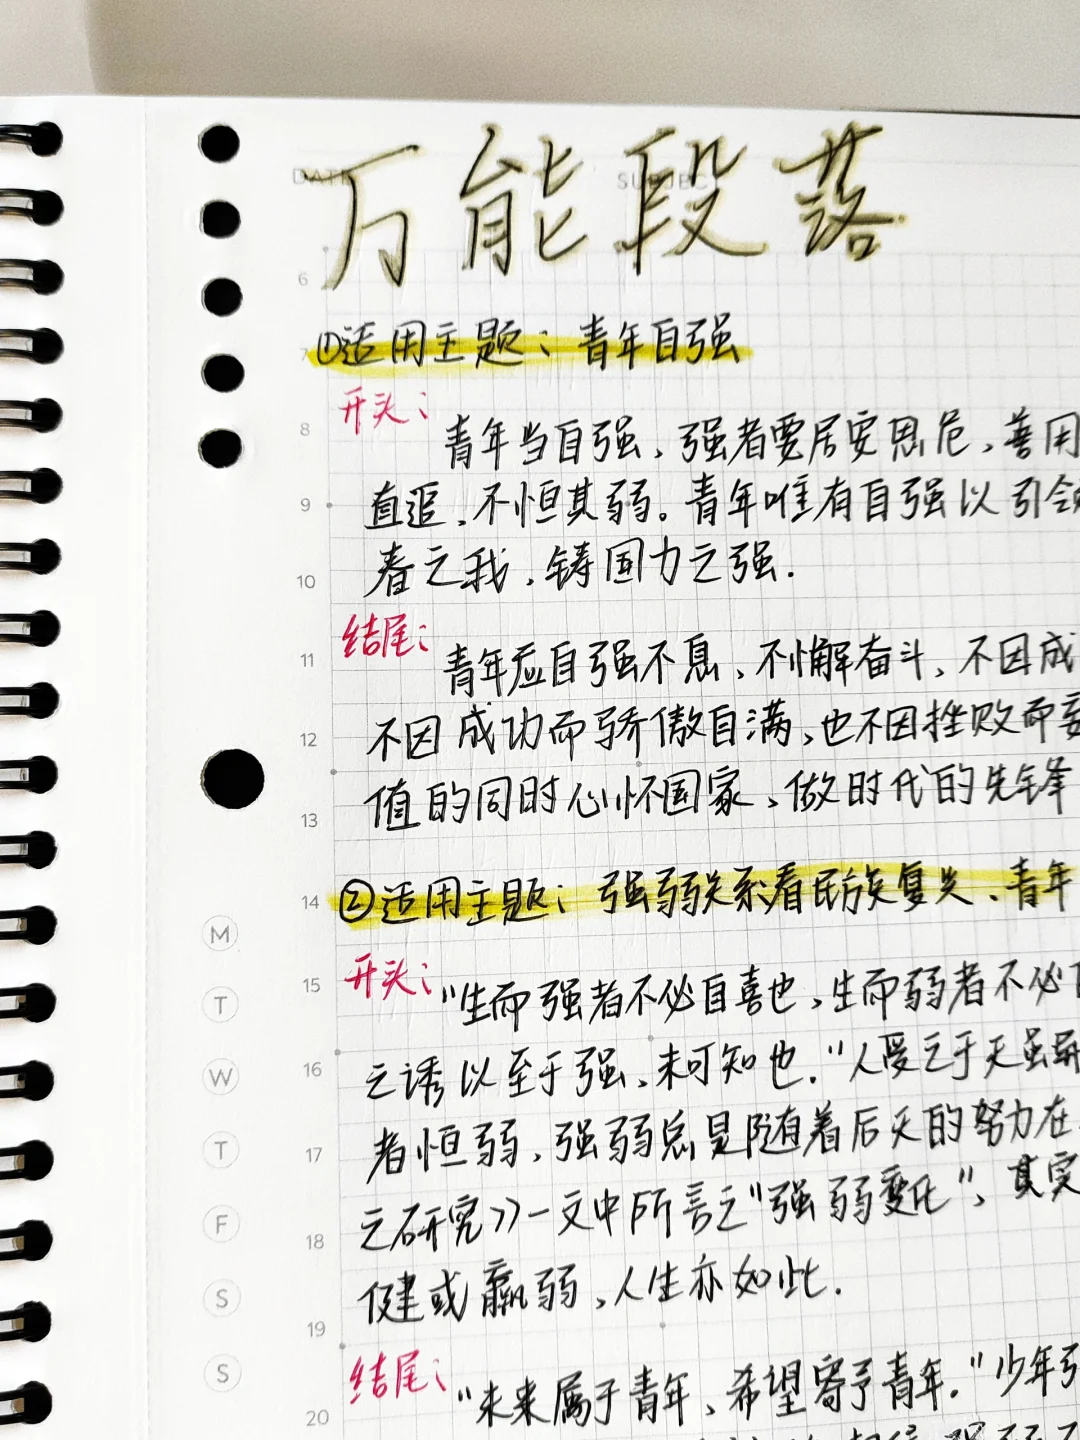 万能段落
DATE SUBJEC
6
7 ①适用主题：青年自强
开头：
8 青年当自强，强者要居安思危，善用
9 直追，不恒其弱。青年唯有自强以引领
10 春之我，铸国力之强.
结尾：
11 青年应自强不息，不懈奋斗，不因成
12 不因成功而骄傲自满，也不因挫败而妄
13 值的同时心怀国家，做时代的先锋
14 ②适用主题：强弱关系看民族复兴、青年
开头：
15 "生而强者不必自喜也，生而弱者不必自
16 之诱以至于强，未可知也."人受之于天虽异
17 者恒弱，强弱总是随着后天的努力在
之研究》一文中所言之"强弱变化"，其实
18 健或羸弱，人生亦如此.
19
结尾：
20 "未来属于青年，希望寄予青年."少年强
M
T
W
T
F
S
S